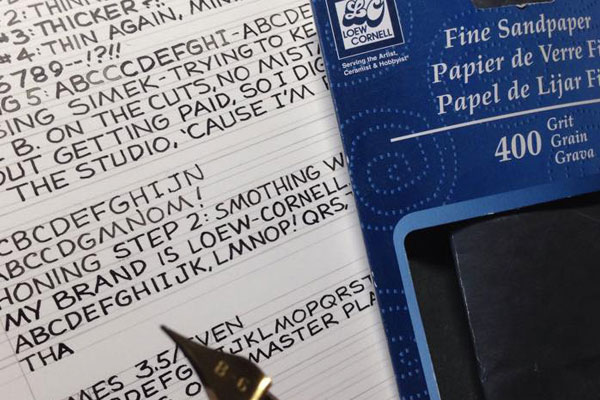 2: THIN
#3: THICKER?!
#4: THIN AGAIN,
3789--!?!!
G 5: ABCCDEFGHI-ABCDEF
SING SIMEK, TRYING TO KE
. B. ON THE CUTS, NO MIST
OUT GETTING PAID, SO, I DIG
THE STUDIO, 'CAUSE I'M
CBCDEFGHIJN
ABCCDGMNOM!
HONING STEP 2: SMOTHING W
MY BRAND IS LOEW-CORNELL
ABCDEFGHIIJK, LMNOP! QRS,
THA
MES 3.5/ VEN
JKLMOPQRST
MASTER PLA
B G
L&C
LOEW
CORNELL
Serving the Artist,
Ceramist & Hobbyist
Fine Sandpaper
Papier de Verre Fi
Papel de Lijar Fi
400 Grit
Grain
Grava